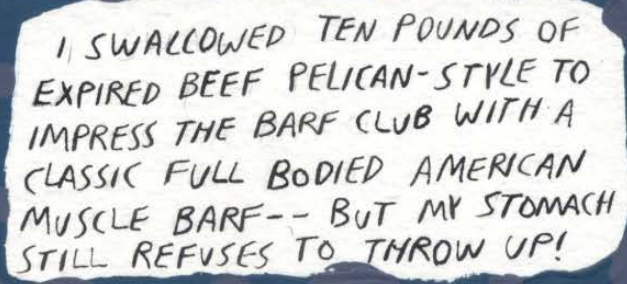 I SWALLOWED TEN POUNDS OF
EXPIRED BEEF PELICAN-STYLE TO
IMPRESS THE BARF CLUB WITH A
CLASSIC FULL BODIED AMERICAN
MUSCLE BARF-- BUT MY STOMACH
STILL REFUSES TO THROW UP!